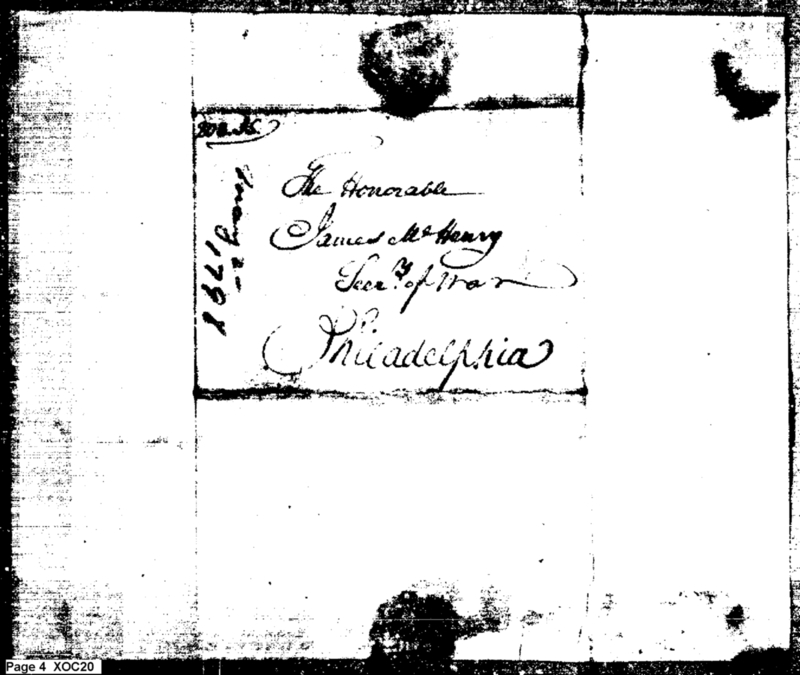 The Honorable
James McHenry
Secry. of War
Philadelphia
1798
Page 4 XOC20